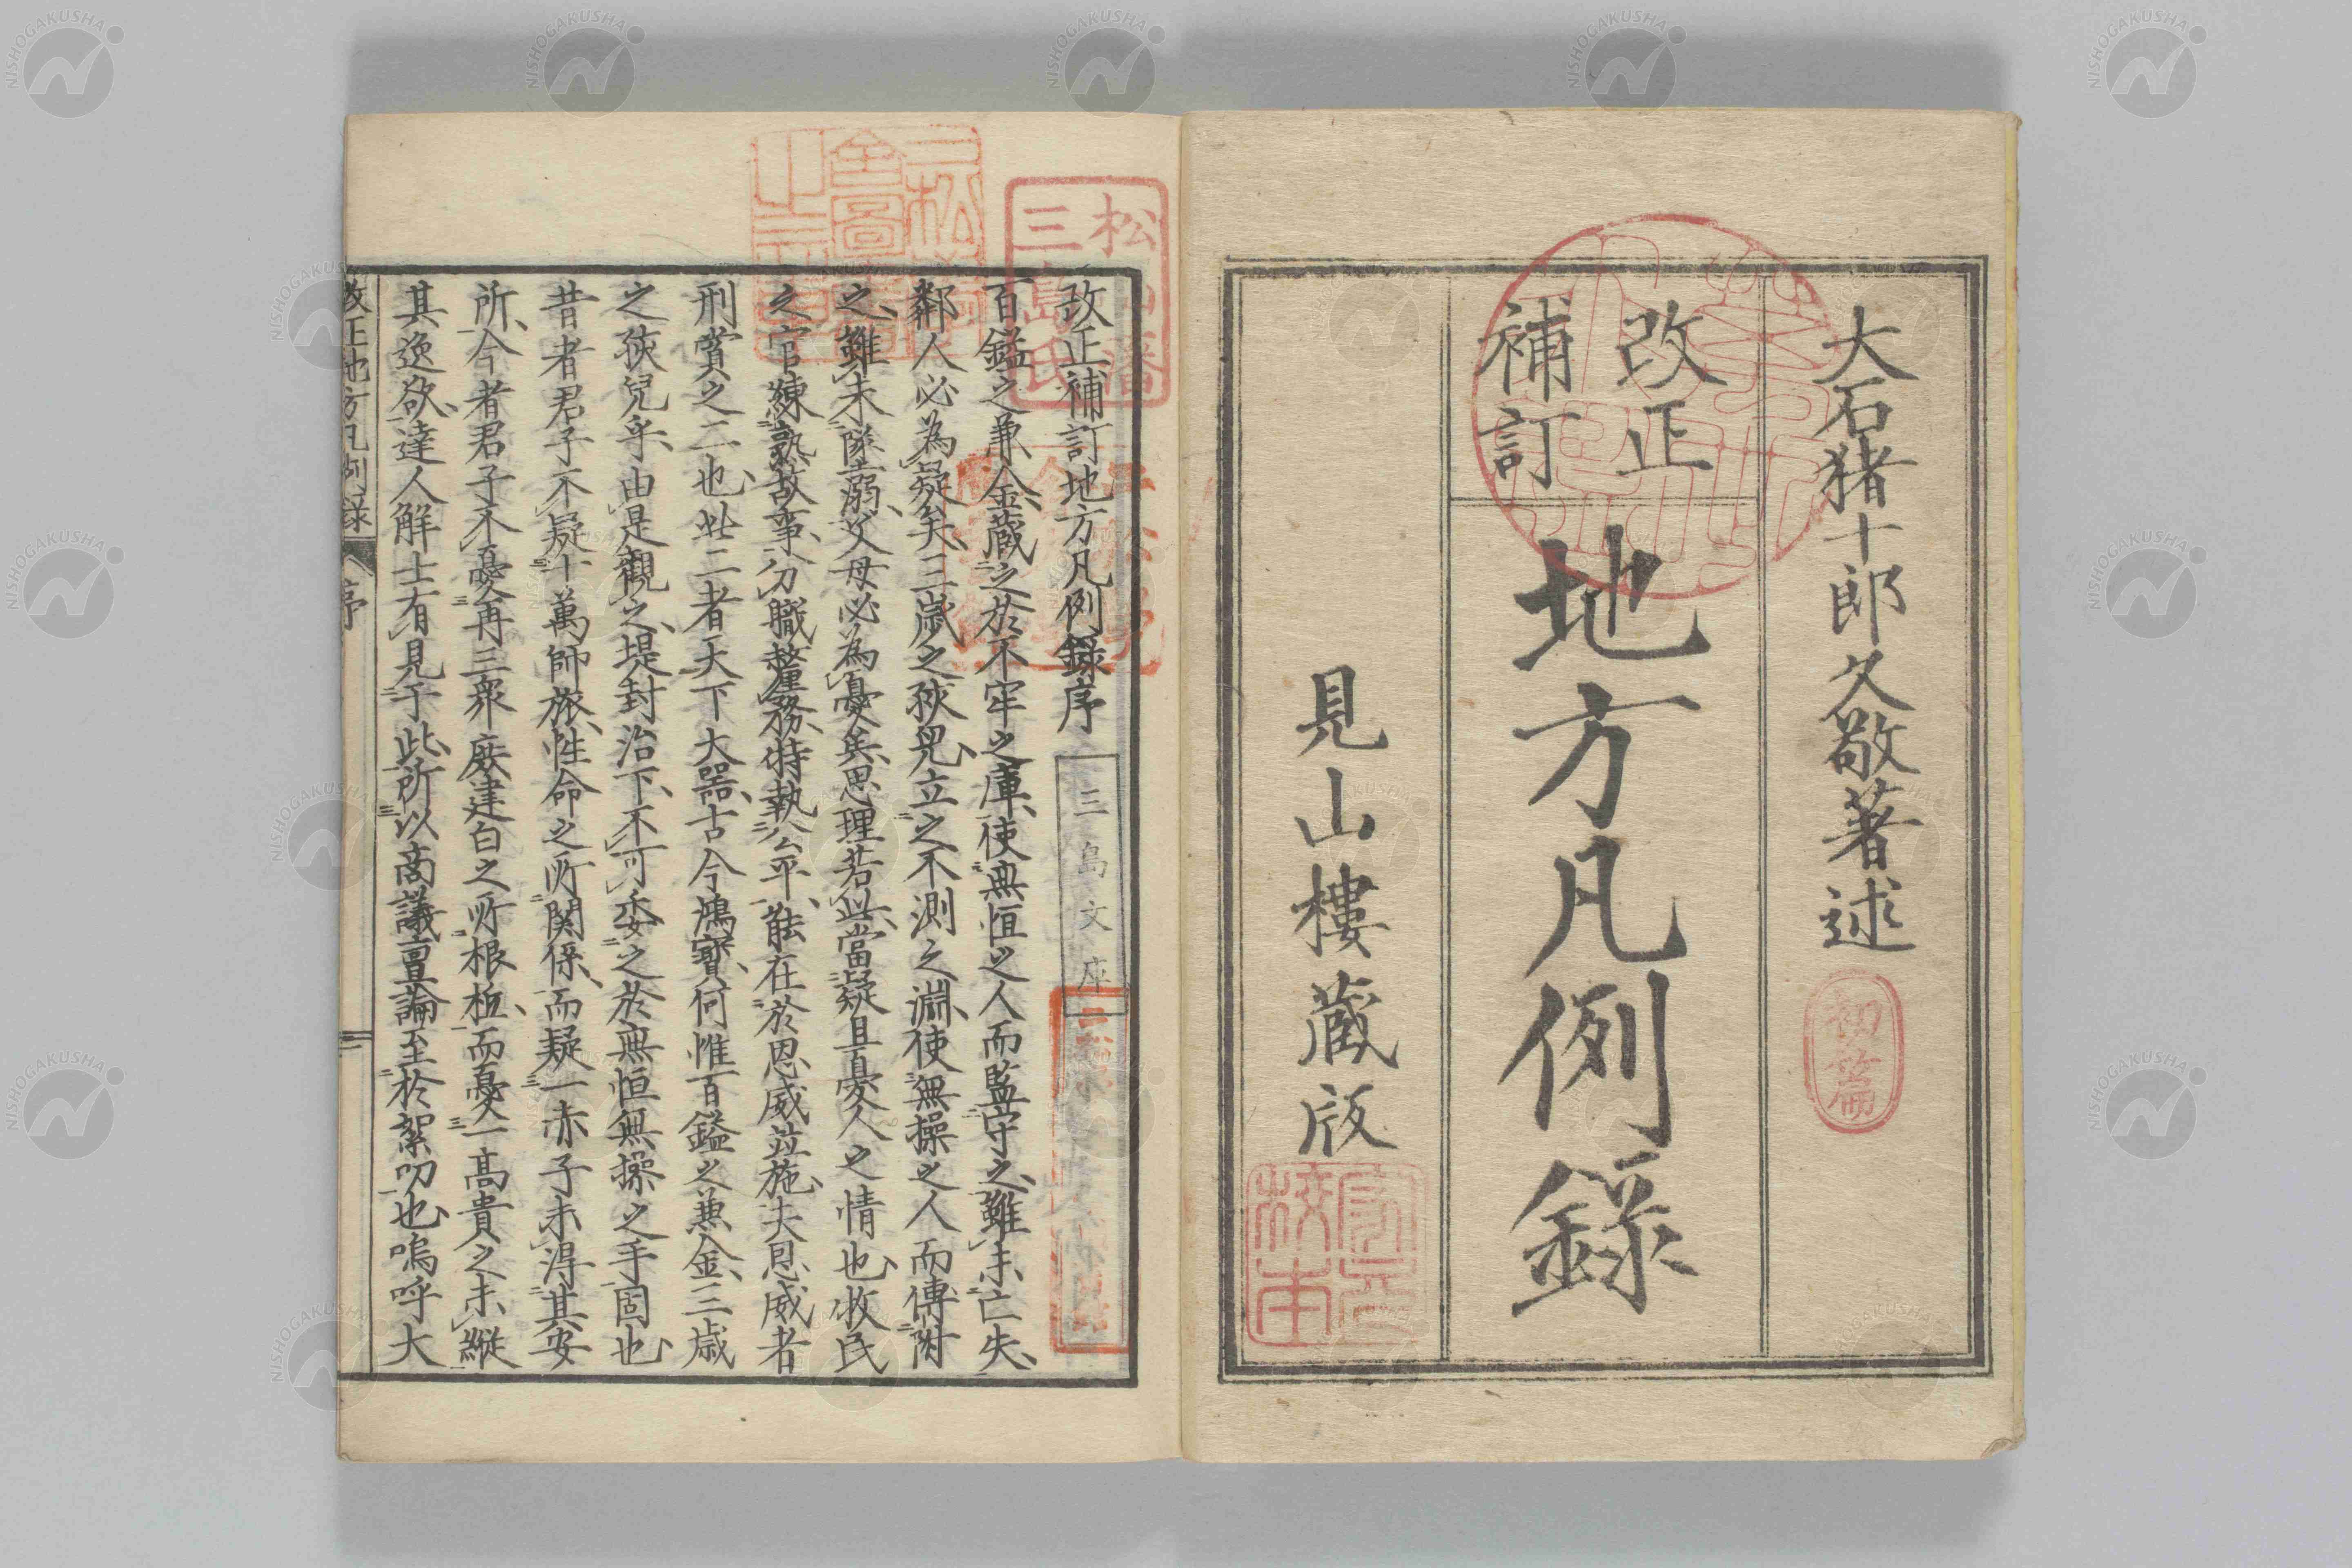 大石猪十郎久敬著述
初篇
改正
補訂
地方凡例録
見山樓蔵版
改正補訂地方凡例録序
三島文庫
百鎰之兼金蔵之於不牢之庫使無恒之人而監守之難未亡失
鄰人必為疑矣三歳之孩児立之不測之淵使無操之人而傳附
之難未隊溺父母必為憂矣思理若此當疑且憂人之情也牧民
之官練熟故事分職釐務特執公平能在於恩威並施夫恩威者
刑賞之二也此二者天下大器古今鴻寶何惟百鎰之兼金三歳
之孩兒乎由是觀之堤封治下不可委之於無恒無操之手固也
昔者君子不疑十萬師旅性命之所関係而疑一赤子未得其安
所今者君子不憂再三衆廢建白之所根柢而憂一高貴之未縦
其逸欲達人解士有見于此所以商議亶論至於絮叨也嗚呼大
改正地方凡例録 序
NISHOGAKUSHA